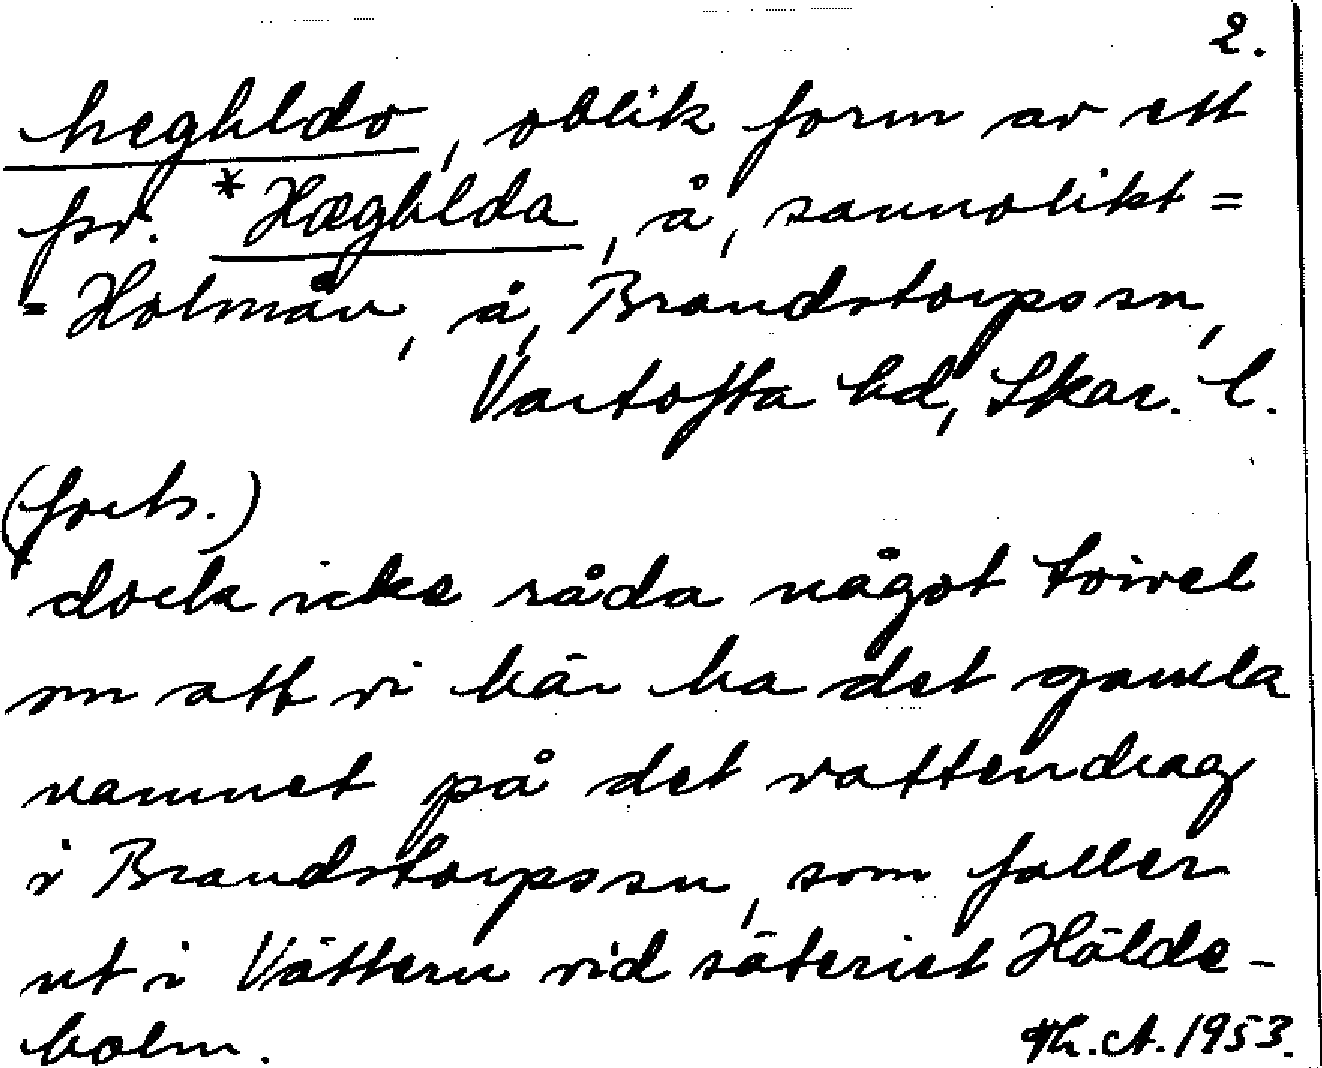 2.
heghldo, oblik form av ett
fsv. *Hæghlda, å, sannolikt =
= Holmån, å, Brandstorps sn,
Vartofta hd, Skar. l.
(forts.)
dock icke råda något tvivel
om att vi här ha det gamla
namnet på det vattendrag
i Brandstorps sn, som faller
ut i Vättern vid säteriet Hälde-
holm.
Th. A. 1953.